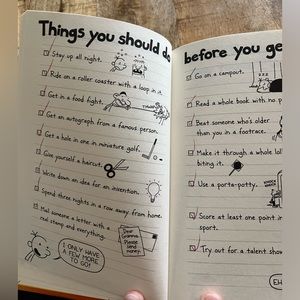 Things you should do before you ge
Stay up all night.
Ride on a roller coaster with a loop in it.
Get in a food fight.
Get an autograph from a famous person.
Get a hole in one in miniature golf.
Give yourself a haircut.
Write down an idea for an invention.
Spend three nights in a row away from home.
Mail someone a letter with a
real stamp and everything.
Dear
Gramma,
Please
send
money.
I ONLY HAVE
A FEW MORE
TO GO!
Go on a campout.
Read a whole book with no p
Beat someone who's older
than you in a footrace.
Make it through a whole loll
biting it.
Use a porta-potty.
Score at least one point in
sport.
Try out for a talent show
EH